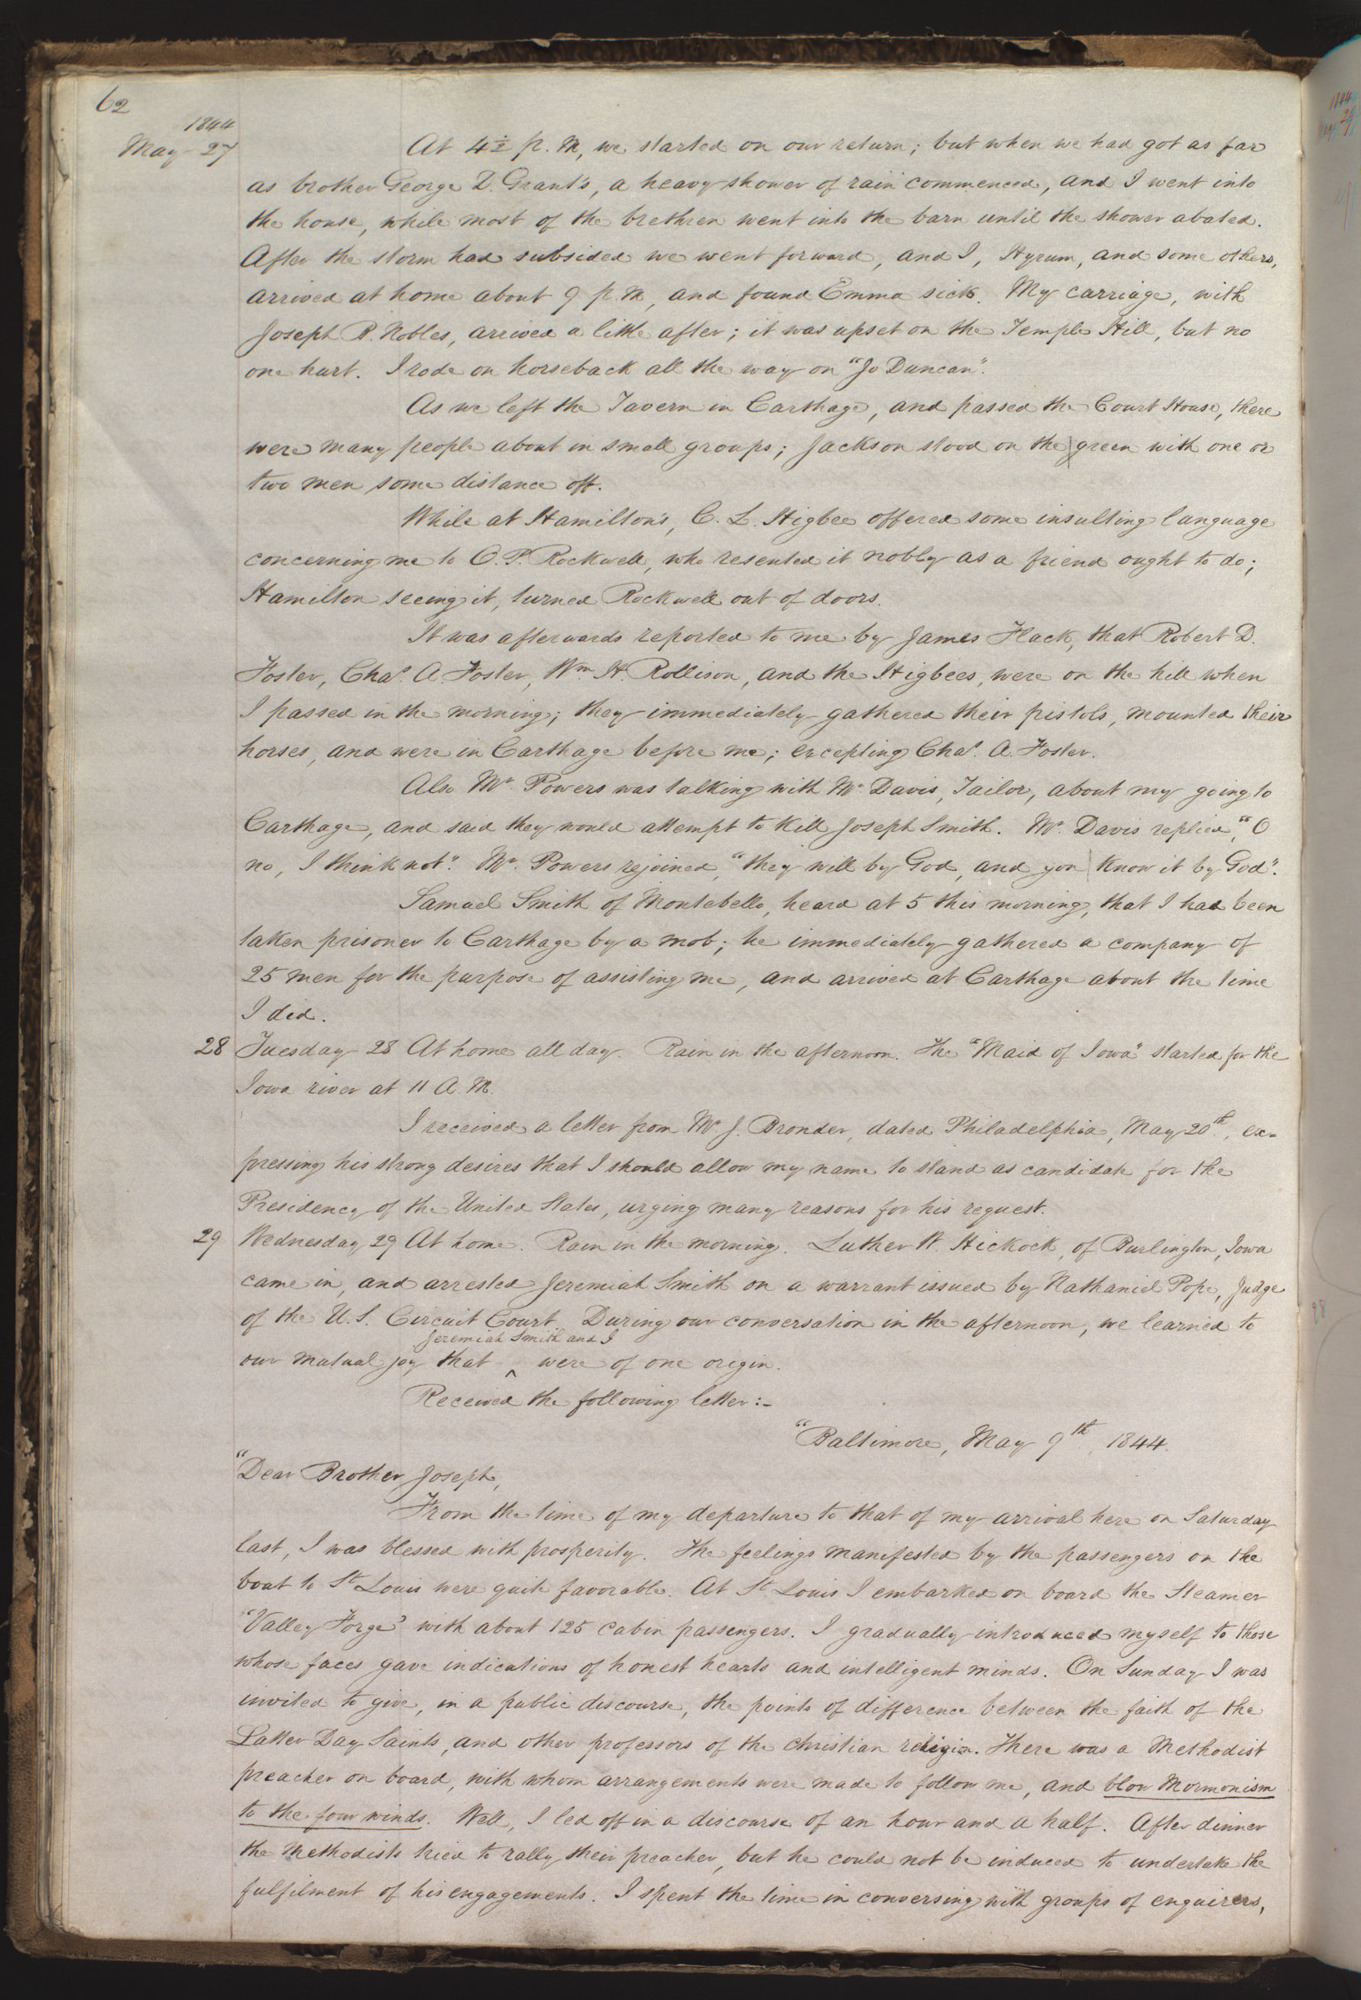 62
1844
May 27
At 4½ p. M, we started on our return; but when we had got as far
as brother George D. Grant's, a heavy shower of rain commenced, and I went into
the house, while most of the brethren went into the barn until the shower abated.
After the storm had subsided we went forward, and I, Hyrum, and some others,
arrived at home about 9 p. M, and found Emma sick. My carriage, with
Joseph B. Nobles, arrived a little after; it was upset on the Temple Hill, but no
one hurt. I rode on horseback all the way on "Jo Duncan".
As we left the Tavern in Carthage, and passed the Court House, there
were many people about in small groups; Jackson stood on the green with one or
two men some distance off.
While at Hamilton's, C. L. Higbee offered some insulting language
concerning me to O. P. Rockwell, who resented it nobly as a friend ought to do;
Hamilton seeing it, turned Rockwell out of doors.
It was afterwards reported to me by James Flack, that Robert D.
Foster, Chas. A. Foster, Wm. H. Rollison, and the Higbees, were on the hill when
I passed in the morning; they immediately gathered their pistols, mounted their
horses, and were in Carthage before me; excepting Chas. A. Foster.
Also Mr. Powers was talking with Mr. Davis, Tailor, about my going to
Carthage, and said they would attempt to kill Joseph Smith. Mr. Davis replied, "O
no, I think not". Mr. Powers rejoined, "they will by God, and you know it by God".
Samuel Smith of Montebello, heard at 5 this morning, that I had been
taken prisoner to Carthage by a mob; he immediately gathered a company of
25 men for the purpose of assisting me, and arrived at Carthage about the time
I did.
28 Tuesday 28 At home all day. Rain in the afternoon. The "Maid of Iowa" started for the
Iowa river at 11 A. M.
I received a letter from Mr. J. Bronder, dated Philadelphia, May 20th, ex-
pressing his strong desires that I should allow my name to stand as candidate for the
Presidency of the United States, urging many reasons for his request.
29 Wednesday 29 At home. Rain in the morning. Luther W. Hickock, of Burlington, Iowa
came in, and arrested Jeremiah Smith on a warrant issued by Nathaniel Pope, Judge
of the U. S. Circuit Court. During our conversation in the afternoon, we learned to
Jeremiah Smith and I
our mutual joy that ^ were of one origin.
Received the following letter:-
"Baltimore, May 9th, 1844.
"Dear Brother Joseph,
From the time of my departure to that of my arrival here on Saturday
last, I was blessed with prosperity. The feelings manifested by the passengers on the
boat to St Louis were quite favorable. At St Louis I embarked on board the Steamer
'Valley Forge' with about 125 cabin passengers. I gradually introduced myself to those
whose faces gave indications of honest hearts and intelligent minds. On Sunday I was
invited to give, in a public discourse, the points of difference between the faith of the
Latter Day Saints, and other professors of the christian religion. There was a Methodist
preacher on board, with whom arrangements were made to follow me, and blow Mormonism
to the four winds. Well, I led off in a discourse of an hour and a half. After dinner
the Methodists tried to rally their preacher, but he could not be induced to undertake the
fulfilment of his engagements. I spent the time in conversing with groups of enquirers,